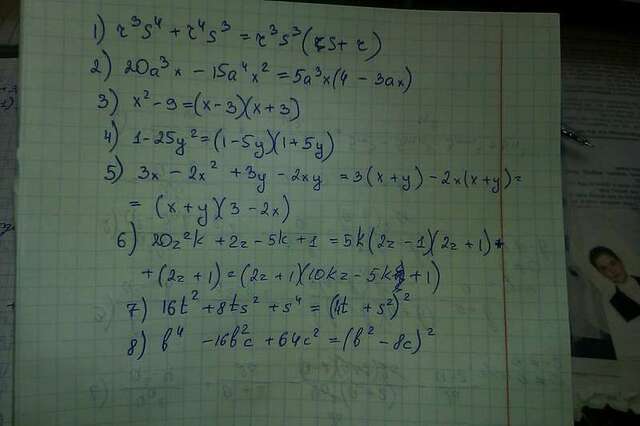 1) r³s⁴ + r⁴s³ = r³s³(s + r)
2) 20a³x − 15a⁴x² = 5a³x(4 − 3ax)
3) x² − 9 = (x−3)(x+3)
4) 1−25y² = (1−5y)(1+5y)
5) 3x − 2x² + 3y − 2xy = 3(x+y) − 2x(x+y) =
= (x+y)(3 − 2x)
6) 20z²k + 2z − 5k + 1 = 5k(2z−1)(2z+1) +
+ (2z+1) = (2z+1)(10kz − 5k + 1)
7) 16t² + 8ts² + s⁴ = (4t + s²)²
8) b⁴ − 16b²c + 64c² = (b² − 8c)²